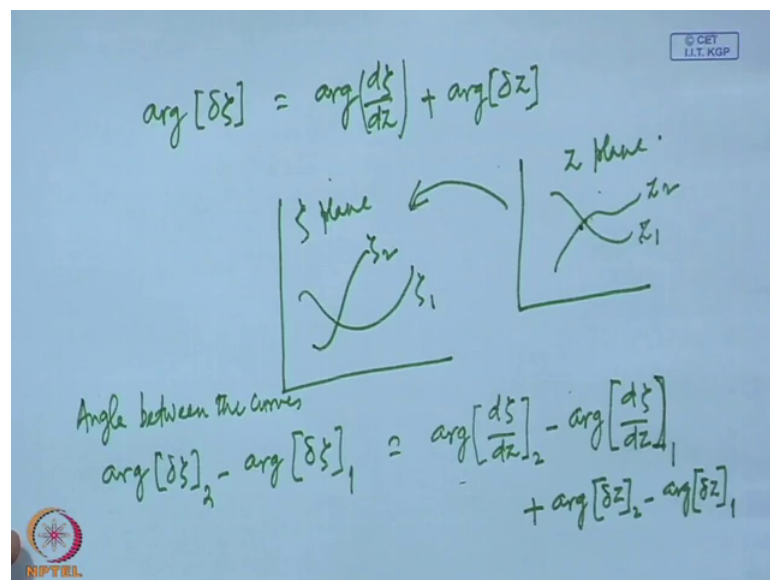 © CET
I.I.T. KGP
arg [δζ] = arg(dζ/dz) + arg[δz]
ζ plane
z plane.
ζ2
ζ1
z2
z1
Angle between the curves
arg[δζ]2 - arg[δζ]1 = arg[dζ/dz]2 - arg[dζ/dz]1
+ arg[δz]2 - arg[δz]1
NPTEL